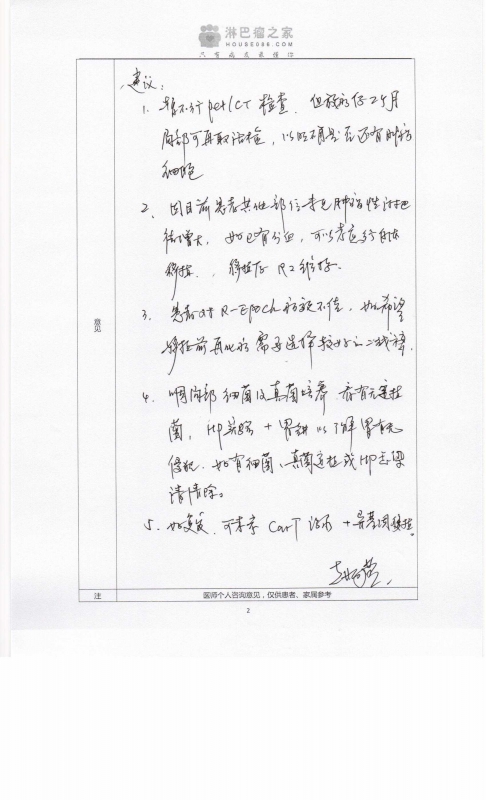 淋巴瘤之家
HOUSE086.COM
只有病友最懂你
建议:
1. 暂不行pet/CT检查. 但放疗后2个月
局部可再取活检, 以明确是否还有肿瘤
细胞
2. 因目前患者其他部位未见肿瘤性淋巴
结增大, 如已有分血, 可以考虑行自体
移植., 移植后R2维持.
3. 患者对R-EPOCH方案不佳, 如希望
移植前再化疗需要选择较好的二线方案.
4. 咽局部细菌及真菌培养. 看有无定植
菌, HP关验+胃镜以了解胃有无
侵犯. 如有细菌、真菌定植或HP感染
请清除。
5. 如复发, 可考虑CarT治疗+异基因移植。
意见
注
医师个人咨询意见,仅供患者、家属参考
2